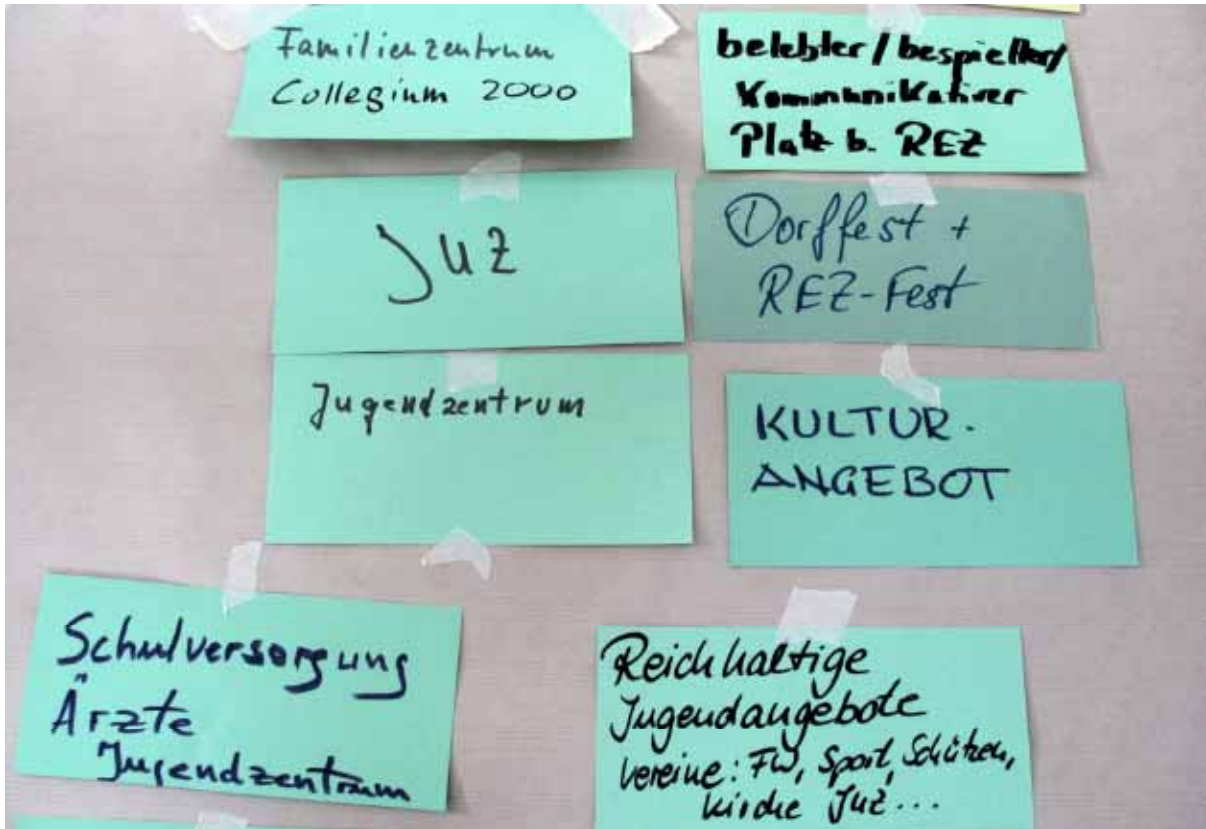 Familienzentrum
Collegium 2000
belebter / bespielter /
Kommunikativer
Platz b. REZ
JUZ
Dorffest +
REZ-Fest
Jugendzentrum
KULTUR-
ANGEBOT
Schulversorgung
Ärzte
Jugendzentrum
Reichhaltige
Jugendangebote
Vereine: FW, Sport, Schützen,
Kirche JUZ...